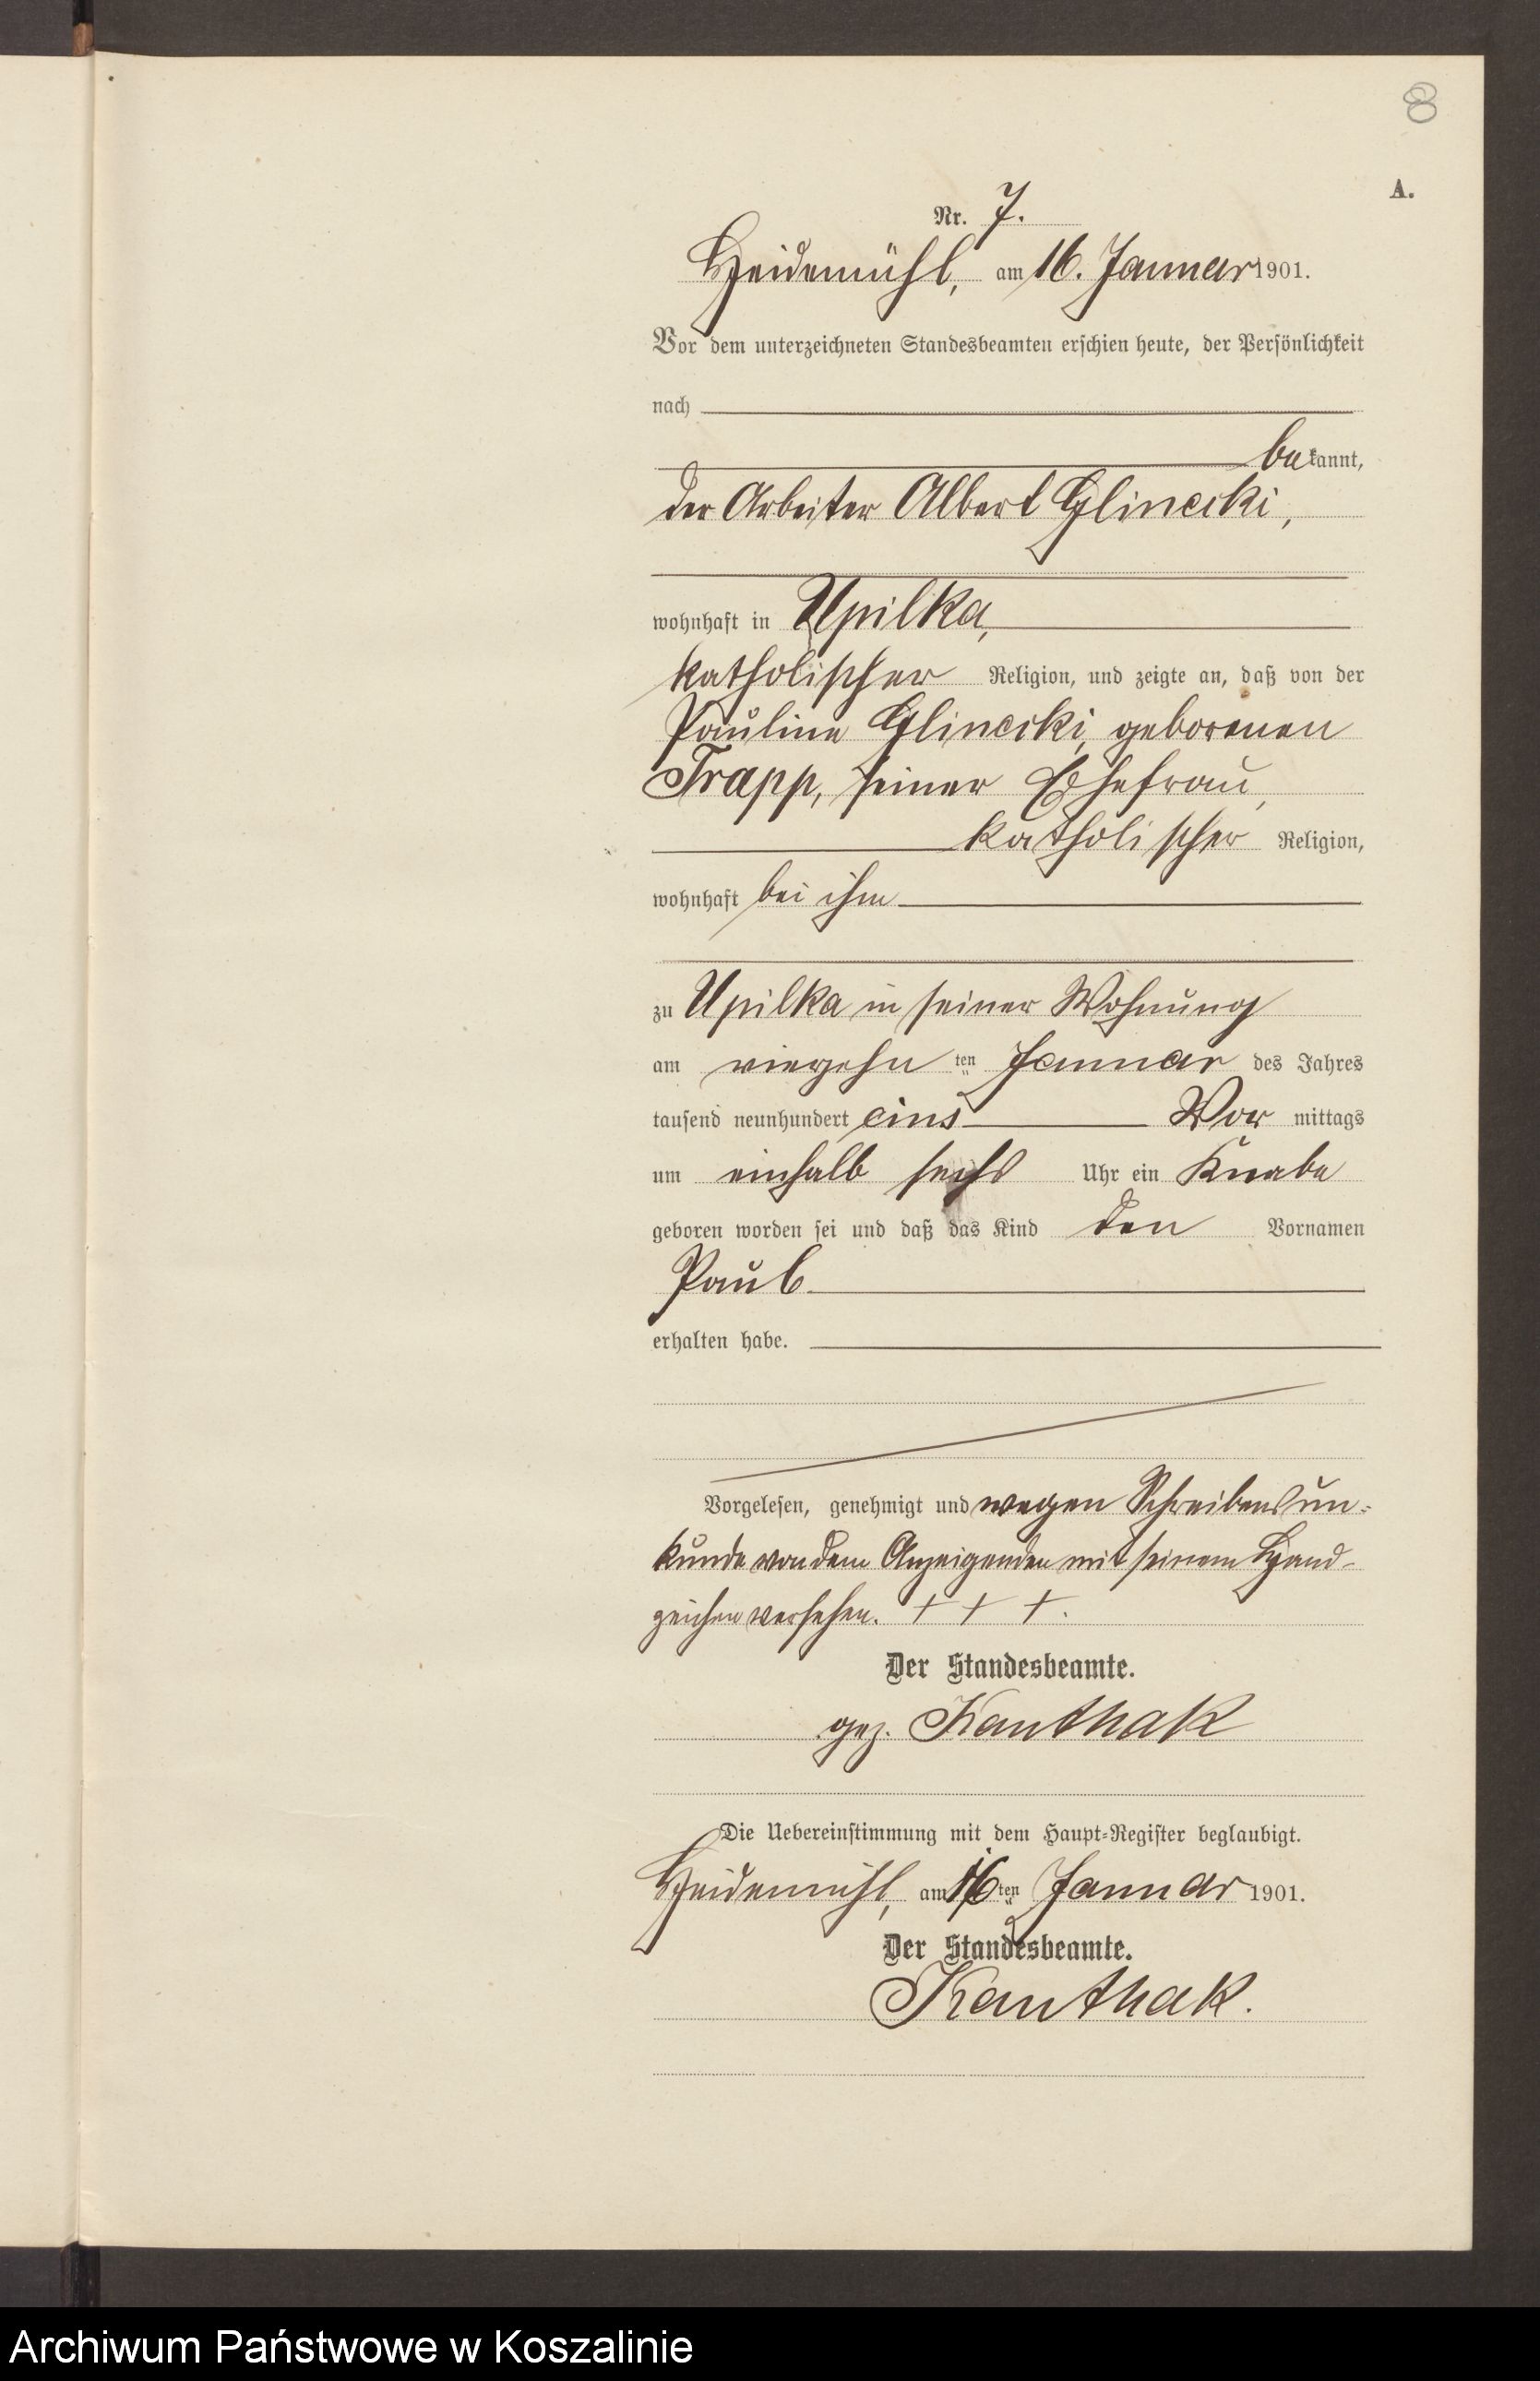 8
A.
Nr. 7.
Heidemühl, am 16. Januar 1901.
Vor dem unterzeichneten Standesbeamten erschien heute, der Persönlichkeit
nach
bekannt,
der Arbeiter Albert Glinecki,
wohnhaft in Upilka,
katholischer Religion, und zeigte an, daß von der
Pauline Glinecki, geborenen
Trapp, seiner Ehefrau,
katholischer Religion,
wohnhaft bei ihm
zu Upilka in seiner Wohnung
am vierzehn ten Januar des Jahres
tausend neunhundert eins Vor mittags
um einhalb sechs Uhr ein Knabe
geboren worden sei und daß das Kind den Vornamen
Paul
erhalten habe.
Vorgelesen, genehmigt und wegen Schreibensun-
kunde von dem Anzeigenden mit seinem Hand-
zeichen versehen. + + +.
Der Standesbeamte.
gez. Kanthak
Die Uebereinstimmung mit dem Haupt-Register beglaubigt.
Heidemühl, am 16 ten Januar 1901.
Der Standesbeamte.
Kanthak.
Archiwum Państwowe w Koszalinie